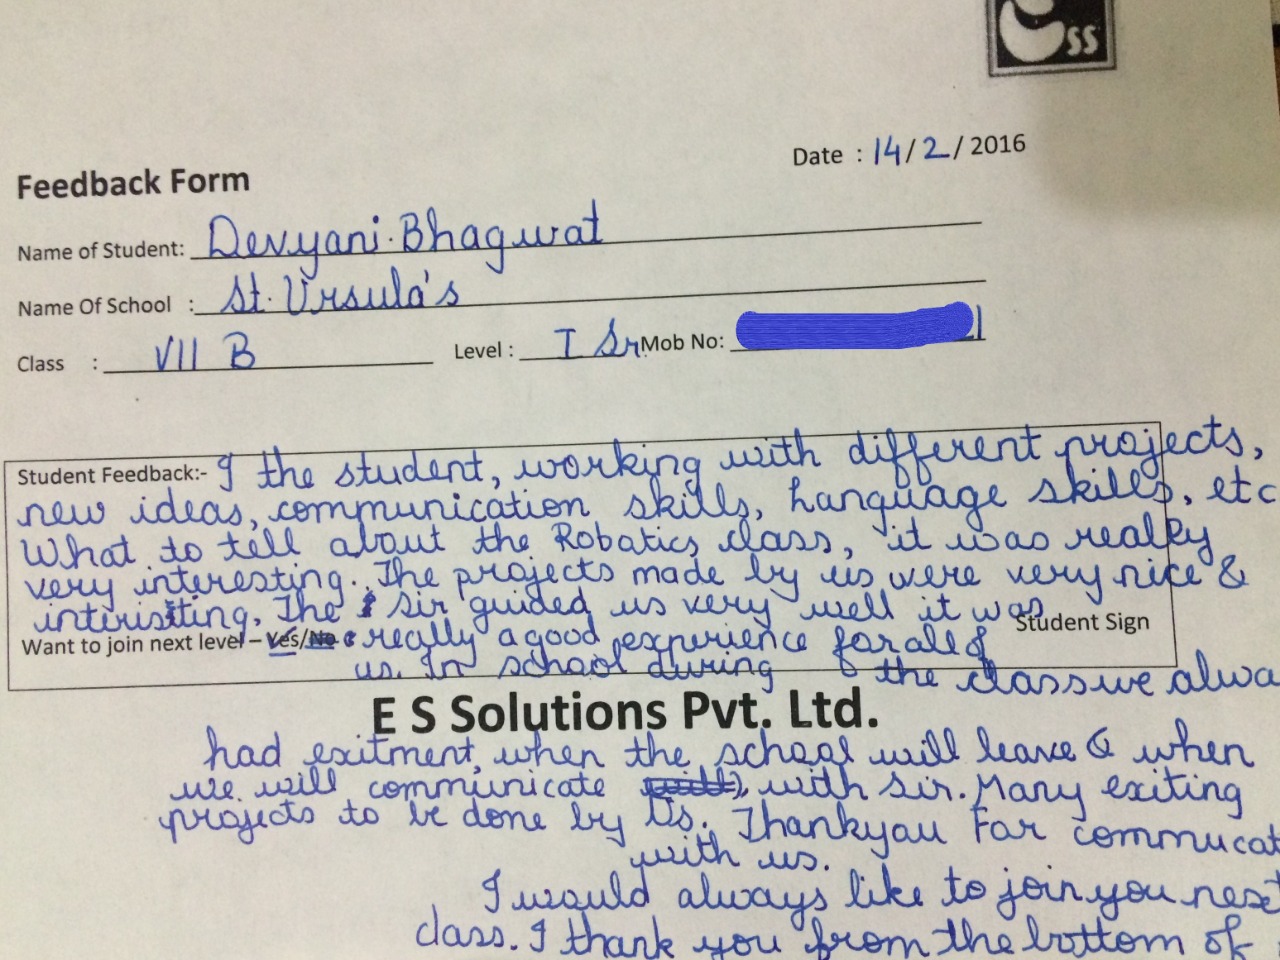 ss
Date : 14/2/2016
Feedback Form
Name of Student: Devyani. Bhagwat
Name Of School : St. Ursula's
Class : VII B Level : I Sr Mob No:
Student Feedback:- I the student, working with different projects,
new ideas, communication skills, Language skills, etc
What to tell about the Robatics class, it was really
very interesting. The projects made by us were very nice &
interisting. The sir guided us very well it was
Student Sign
Want to join next level – Yes/No really a good experience for all of
us. In school during the class we alwa
E S Solutions Pvt. Ltd.
had exitment, when the school will leave & when
we will communicate with sir. Many exiting
projects to be done by Us. Thankyou For commucat
with us.
I would always like to join you next
class. I thank you from the bottom of